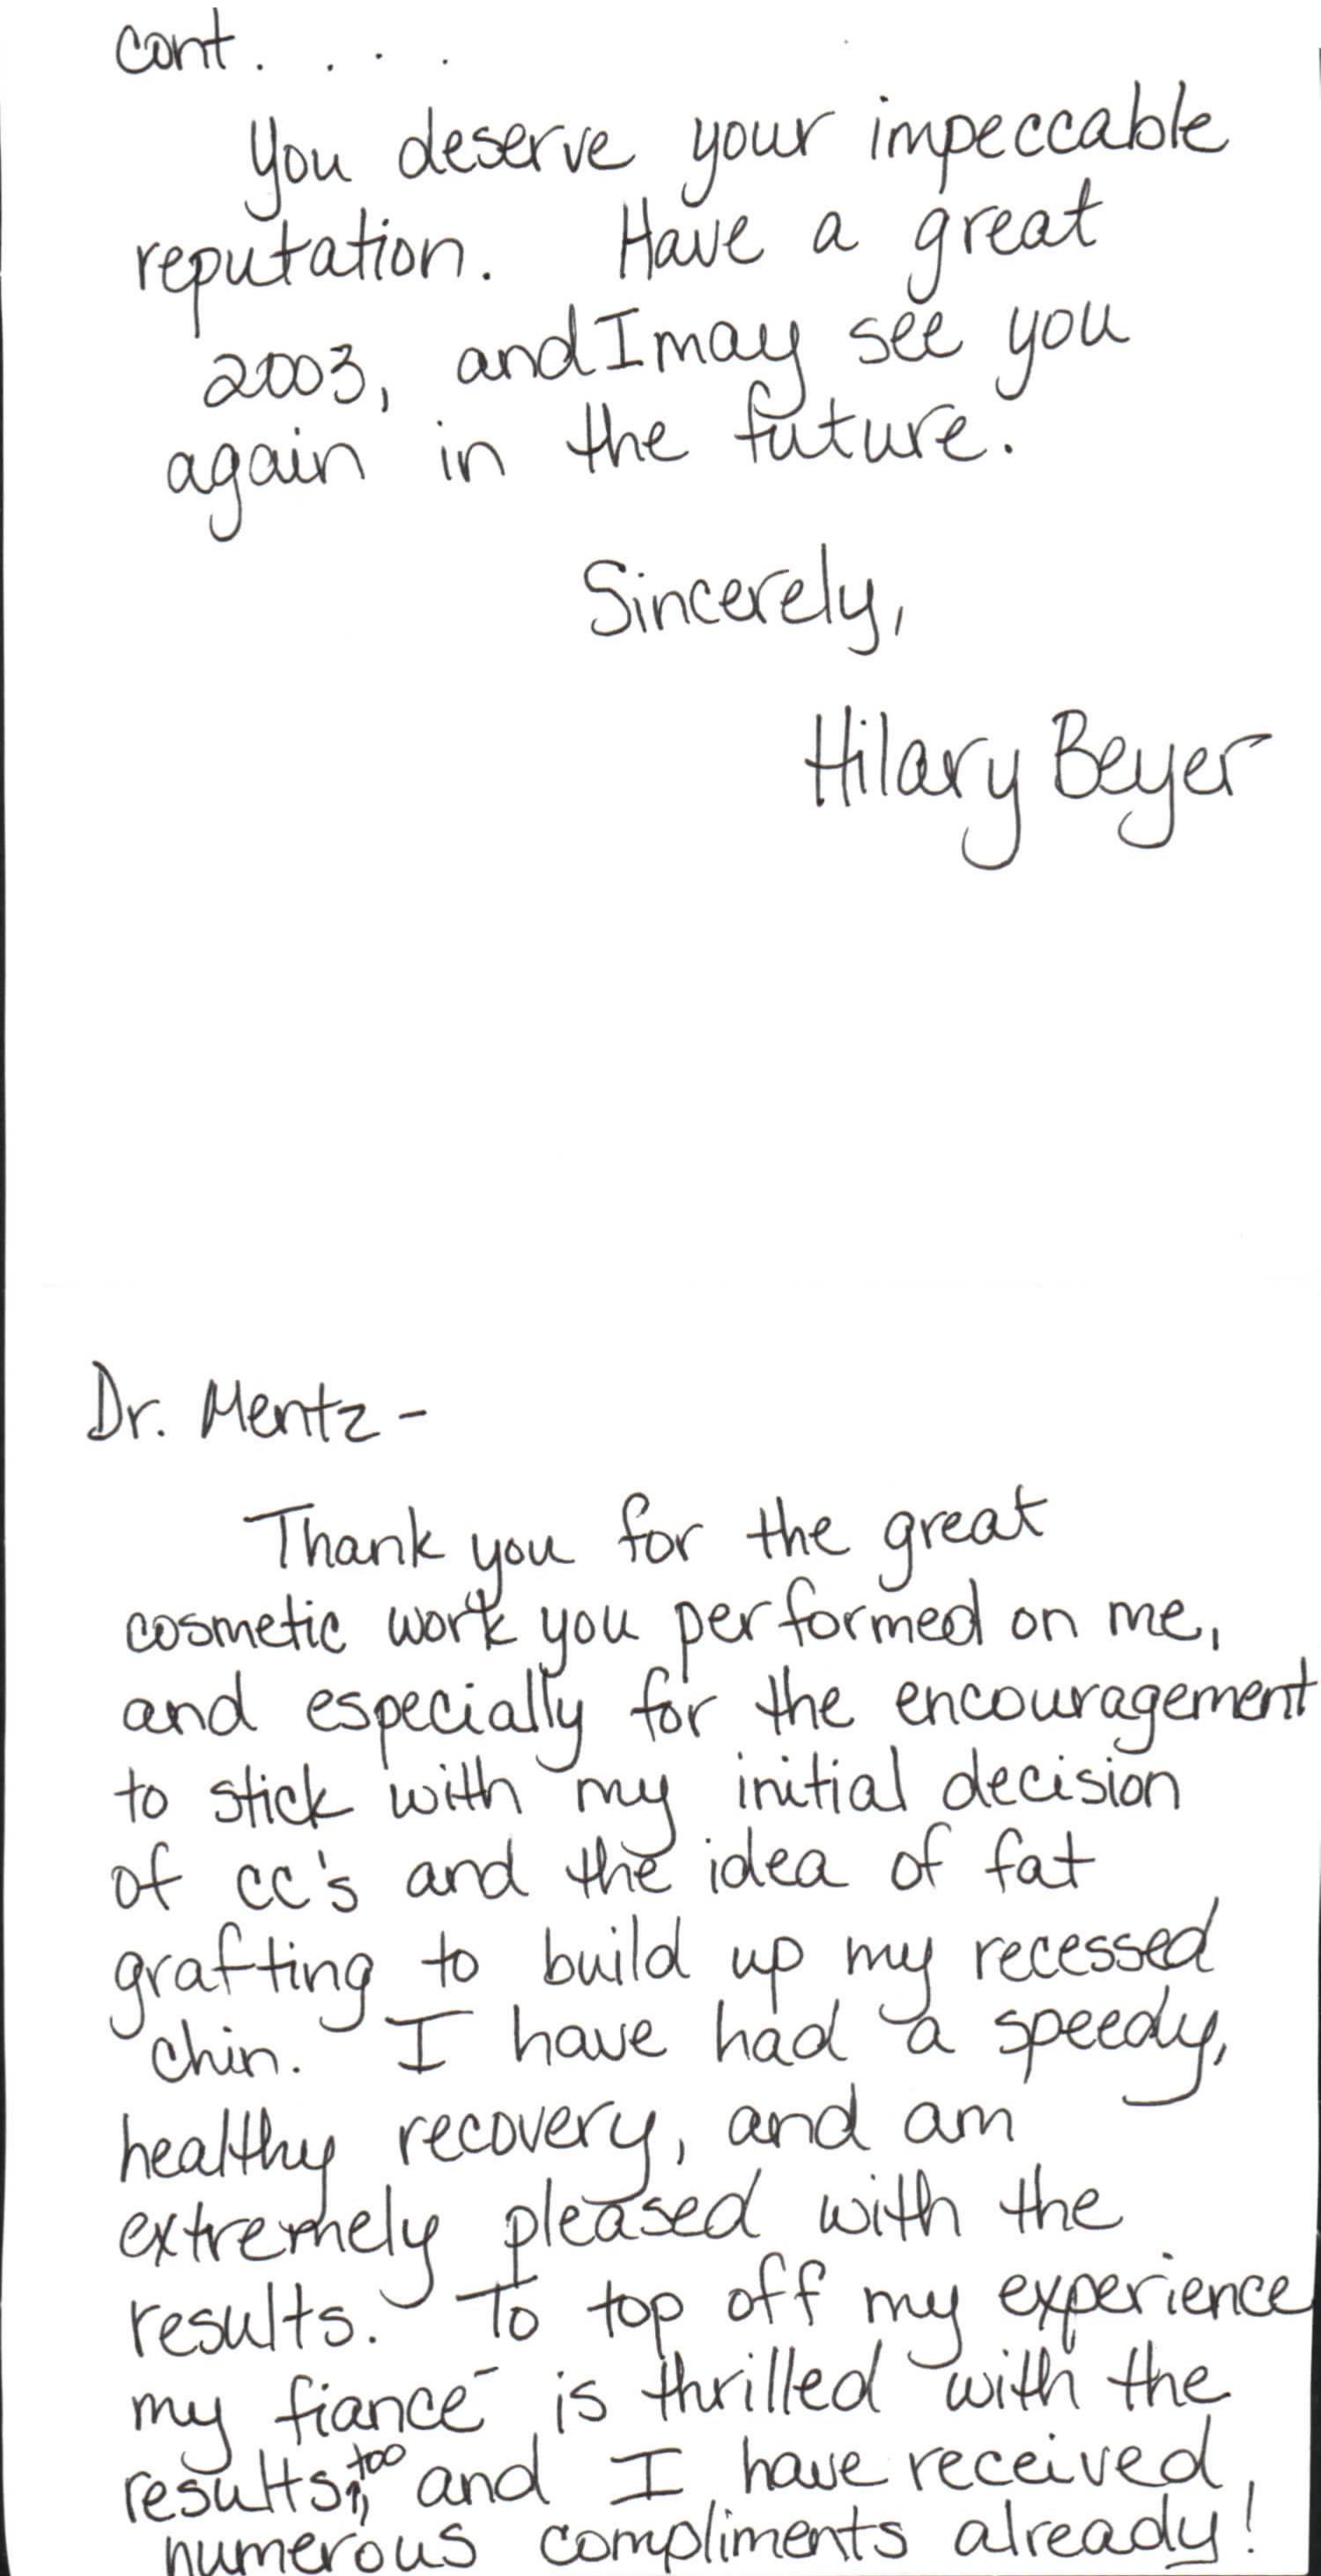 cont. . . .
You deserve your impeccable
reputation. Have a great
2003, and I may see you
again in the future.
Sincerely,
Hilary Beyer
Dr. Mentz -
Thank you for the great
cosmetic work you performed on me,
and especially for the encouragement
to stick with my initial decision
of cc's and the idea of fat
grafting to build up my recessed
chin. I have had a speedy,
healthy recovery, and am
extremely pleased with the
results. To top off my experience
my fiancé is thrilled with the
results, too and I have received
numerous compliments already!